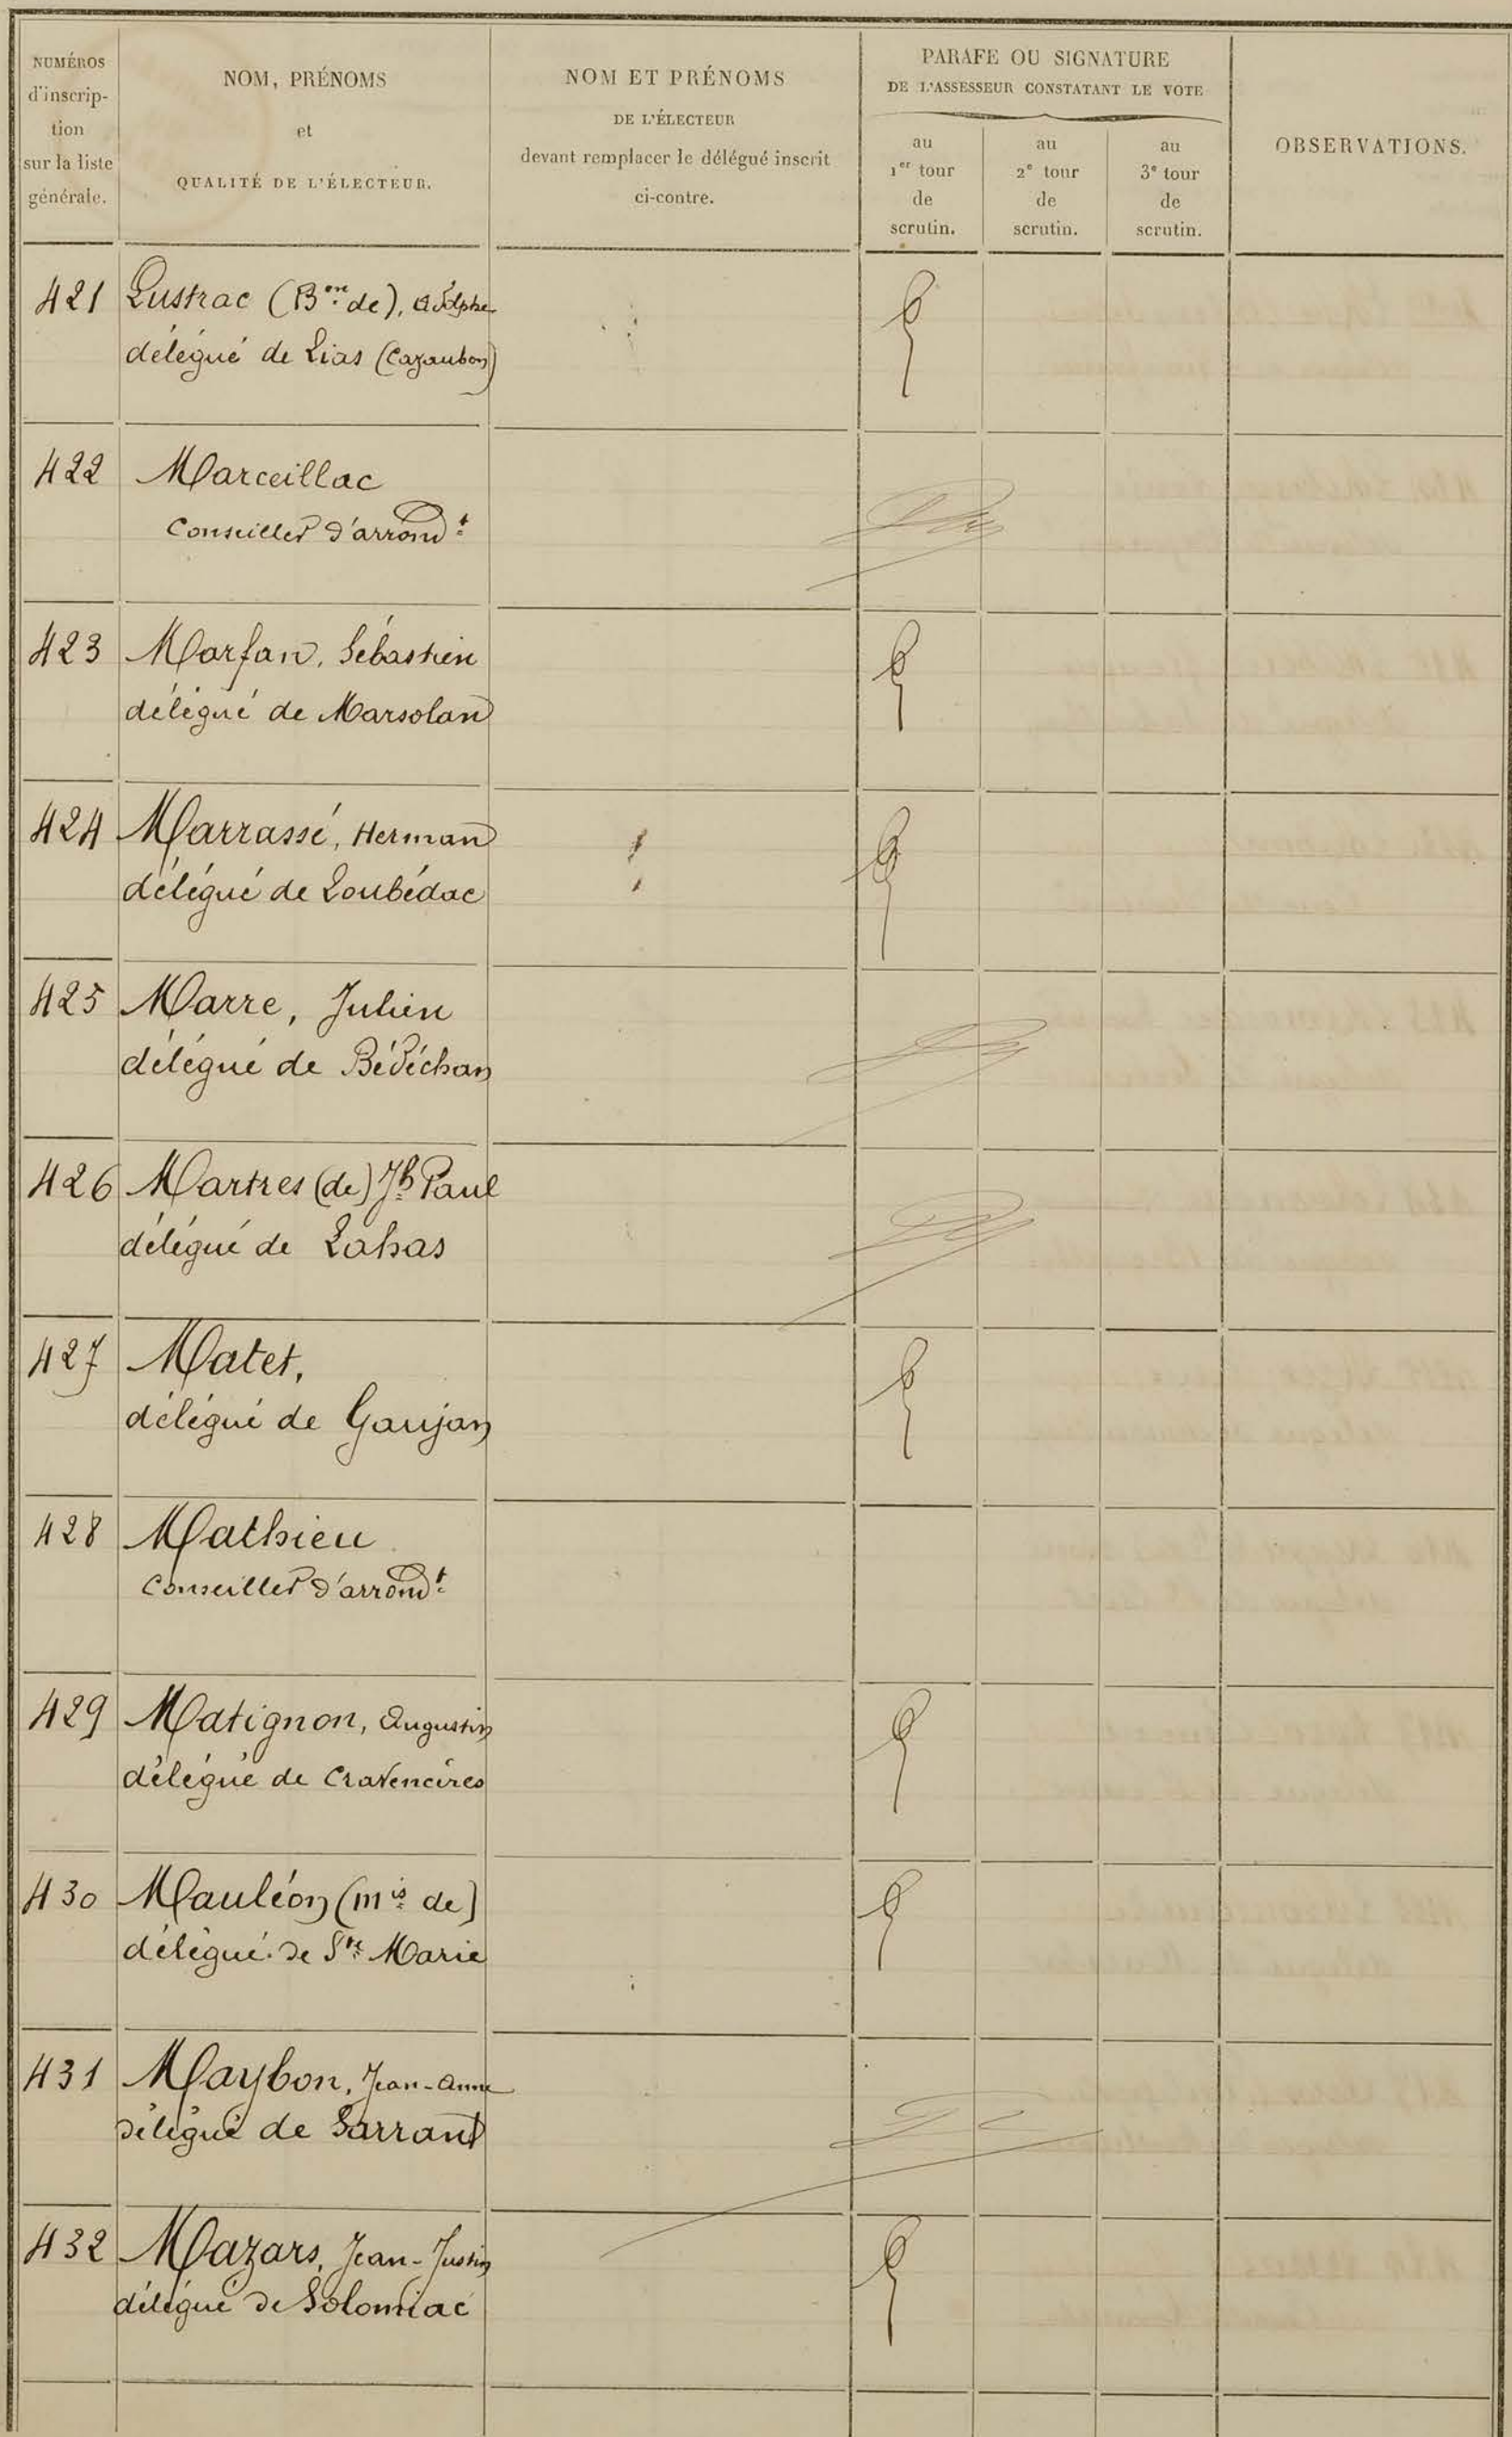 NUMÉROS
d'inscrip-
tion
sur la liste
générale.
NOM, PRÉNOMS
et
QUALITÉ DE L'ÉLECTEUR.
NOM ET PRÉNOMS
DE L'ÉLECTEUR
devant remplacer le délégué inscrit
ci-contre.
PARAFE OU SIGNATURE
DE L'ASSESSEUR CONSTATANT LE VOTE
au
1er tour
de
scrutin.
au
2e tour
de
scrutin.
au
3e tour
de
scrutin.
OBSERVATIONS.
421 Lustrac (Bon de), Adolphe
délégué de Lias (Cazaubon)
422 Marceillac
Conseiller d'arrondt
423 Marfan, Sébastien
délégué de Marsolan
424 Marrassé, Herman
délégué de Loubédac
425 Marre, Julien
délégué de Bédéchan
426 Martres (de) Jh Paul
délégué de Lahas
427 Matet,
délégué de Gaujan
428 Mathieu
Conseiller d'arrondt
429 Matignon, Augustin
délégué de Cravencères
430 Mauléon (Mis de)
délégué de Ste Marie
431 Maybon, Jean-Anne
délégué de Sarrant
432 Mazars, Jean-Justin
délégué de Solomiac